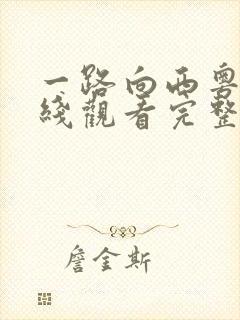 一路向西粤
线观看完整
詹金斯